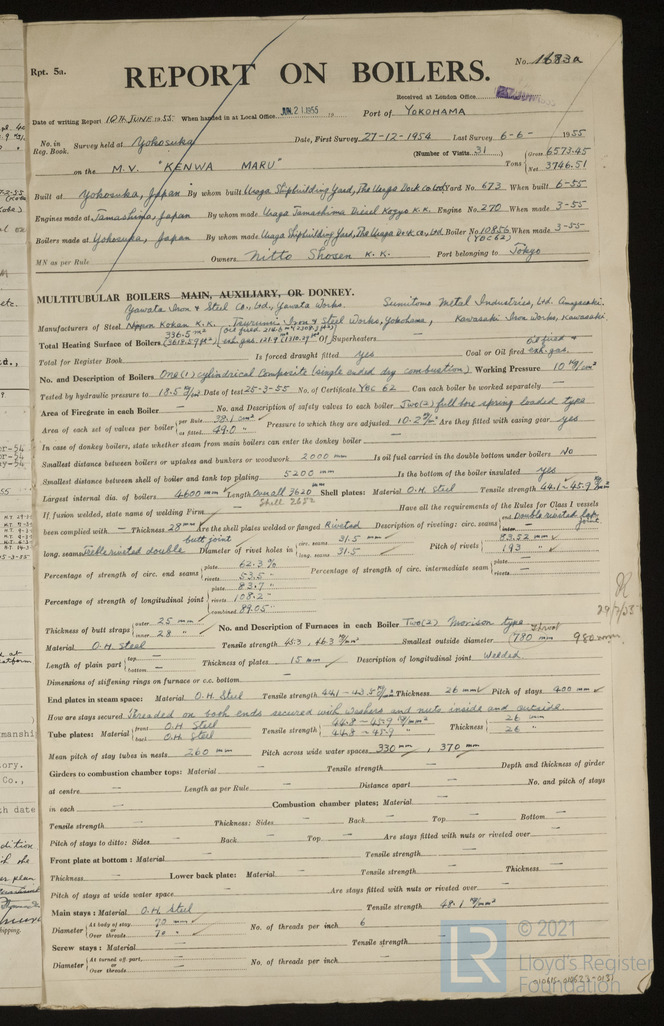 Rpt. 5a.
No. 1683a
REPORT ON BOILERS.
Received at London Office
Date of writing Report 10th JUNE 1955. When handed in at Local Office JUN. 21 1955 19 Port of YOKOHAMA
No. in Reg. Book. Survey held at Yokosuka Date, First Survey 27-12-1954 Last Survey 6-6- 1955
(Number of Visits 31 )
on the M.V. "KENWA MARU" Tons Gross 6573.45 Net 3746.51
Built at Yokosuka, Japan By whom built Uraga Shipbuilding Yard, The Uraga Dock Co Ltd Yard No. 673 When built 6-55
Engines made at Tamashima, Japan By whom made Uraga Tamashima Diesel Kogyo K.K. Engine No. 270 When made 3-55
Boilers made at Yokosuka, Japan By whom made Uraga Shipbuilding Yard, The Uraga Dock Co, Ltd Boiler No. 10856 (YOC 62) When made 3-55
MN as per Rule Owners Nitto Shosen K.K. Port belonging to Tokyo
MULTITUBULAR BOILERS MAIN, AUXILIARY, OR DONKEY.
Yawata Iron & Steel Co., Ltd., Yawata Works. Sumitomo Metal Industries, Ltd. Amagasaki.
Manufacturers of Steel Nippon Kokan K.K. Tsurumi Iron & Steel Works, Yokohama, Kawasaki Iron Works, Kawasaki
336.5 m²
Total Heating Surface of Boilers of Superheaters
Total for Register Book Is forced draught fitted yes Coal or Oil fired oil fired & exh. gas.
No. and Description of Boilers One (1) cylindrical Composite (single ended dry combustion) Working Pressure 10 kg/cm²
Tested by hydraulic pressure to 18.5 kg/cm² Date of test 25-3-55 No. of Certificate YOC 62 Can each boiler be worked separately —
Area of Firegrate in each Boiler — No. and Description of safety valves to each boiler Two (2) full bore spring loaded type
Area of each set of valves per boiler per Rule 38.1 cm² as fitted 49.0 " Pressure to which they are adjusted 10.2 kg/cm² Are they fitted with easing gear yes
In case of donkey boilers, state whether steam from main boilers can enter the donkey boiler —
Smallest distance between boilers or uptakes and bunkers or woodwork 2000 mm Is oil fuel carried in the double bottom under boilers No
Smallest distance between shell of boiler and tank top plating 5200 mm Is the bottom of the boiler insulated yes
Largest internal dia. of boilers 4600 mm Length Overall 3620 mm Shell plates: Material O.H. Steel Tensile strength 44.1-45.9 kg/mm²
If fusion welded, state name of welding Firm — Have all the requirements of the Rules for Class I vessels
been complied with — Thickness 28 mm Are the shell plates welded or flanged Riveted Description of riveting: circ. seams end Double riveted lap joint inter. —
long. seams Treble riveted double butt joint Diameter of rivet holes in circ. seams 31.5 mm long. seams 31.5 Pitch of rivets 83.52 mm 193 "
Percentage of strength of circ. end seams plate 62.3 % rivets 53.5 " Percentage of strength of circ. intermediate seam plate — rivets —
Percentage of strength of longitudinal joint plate 83.7 " rivets 108.2 " combined 89.05
Thickness of butt straps outer 25 mm inner 28 " No. and Description of Furnaces in each Boiler Two (2) Morison type
Material O.H. Steel Tensile strength 45.3, 46.3 kg/mm² Smallest outside diameter 780 mm 980 mm
Length of plain part top — bottom — Thickness of plates 15 mm Description of longitudinal joint Welded
Dimensions of stiffening rings on furnace or c.c. bottom —
End plates in steam space: Material O.H. Steel Tensile strength 44.1-43.5 kg/mm² Thickness 26 mm Pitch of stays 400 mm
How are stays secured Threaded on each ends secured with washers and nuts inside and outside.
Tube plates: Material front O.H. Steel back O.H. Steel Tensile strength 44.8-45.9 kg/mm² 44.8-45.9 " Thickness 26 mm 26 "
Mean pitch of stay tubes in nests 260 mm Pitch across wide water spaces 330 mm, 370 mm
Girders to combustion chamber tops: Material — Tensile strength — Depth and thickness of girder
at centre — Length as per Rule — Distance apart — No. and pitch of stays
in each — Combustion chamber plates: Material —
Tensile strength — Thickness: Sides — Back — Top — Bottom —
Pitch of stays to ditto: Sides — Back — Top — Are stays fitted with nuts or riveted over —
Front plate at bottom: Material — Tensile strength —
Thickness — Lower back plate: Material — Tensile strength — Thickness —
Pitch of stays at wide water space — Are stays fitted with nuts or riveted over —
Main stays: Material O.H. Steel Tensile strength 48.1 kg/mm²
Diameter At body of stay, 70 mm or Over threads 70 " No. of threads per inch 6
Screw stays: Material — Tensile strength —
Diameter At turned off part, or Over threads — No. of threads per inch —
© 2021
Lloyd's Register
Foundation